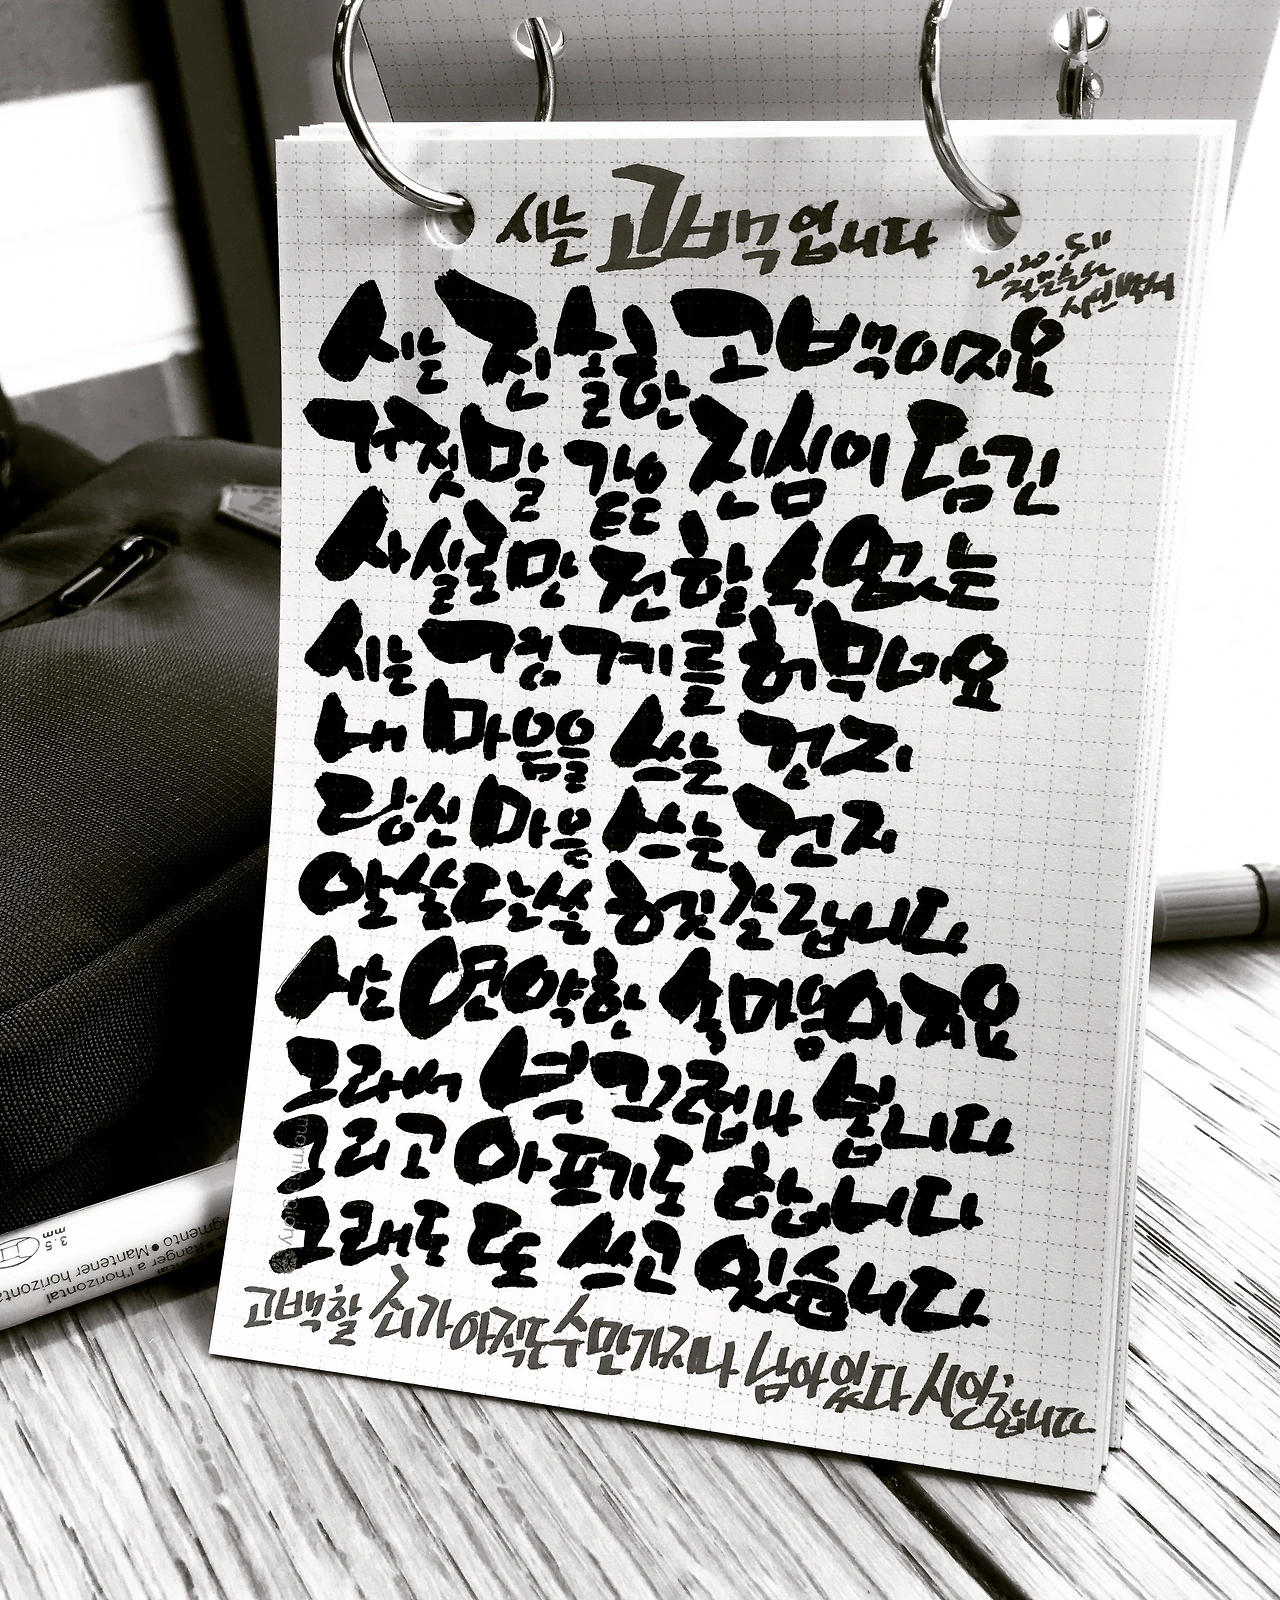 시는 고백입니다
2020.5.11
시는 진실한 고백이지요
거짓말 같은 진심이 담긴
사실로만 전할 수 없는
시는 경계를 허무네요
내 마음을 쓰는 건지
당신 마음 쓰는 건지
알쏭달쏭 헷갈립니다
시는 연약한 속마음이지요
그라서 넋그럽나 봅니다
그리고 아프기도 합니다
그래도 또 쓰고 있습니다
고백할 죄가 아직도 수만가지나 남아있다 시인합니다
morning glory
3.5 mm
Ranger a l'horizontal
Mantener horizontal